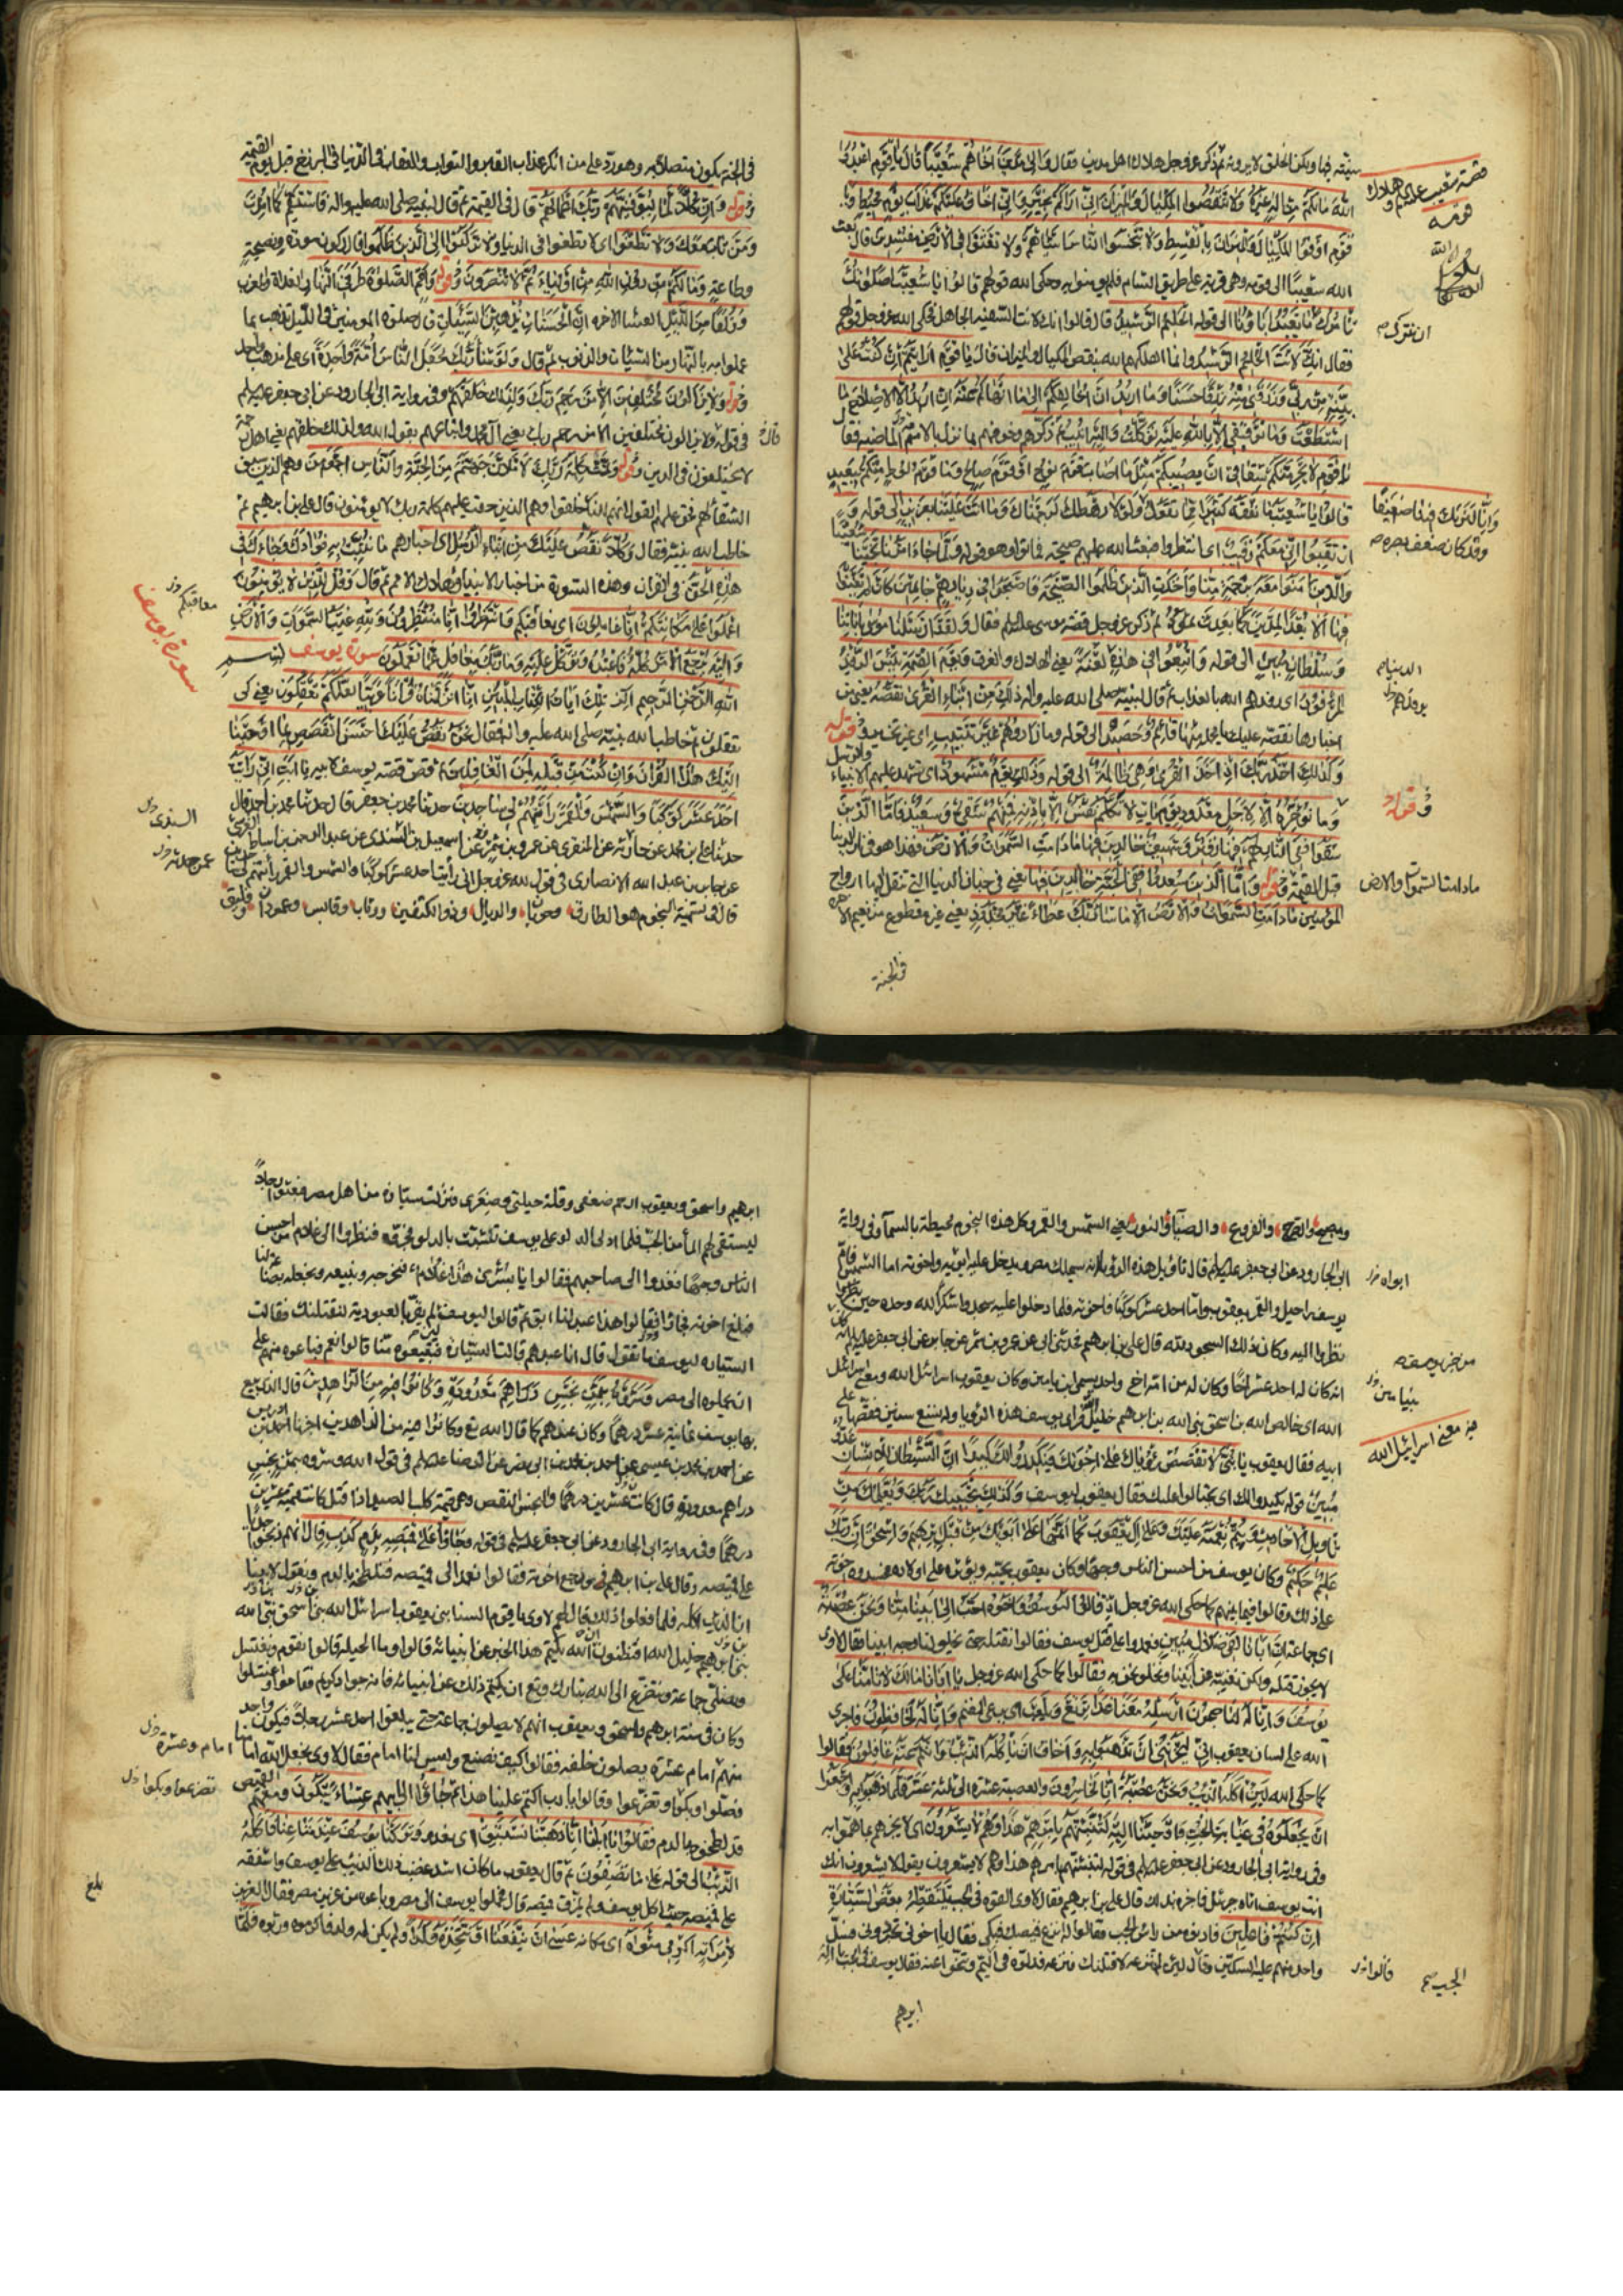 سيئته بها ولكن الخلق لا يرونه ثم ذكر عز وجل هلاك اهل مدين فقال وَالى مَدْيَنَ اَخَاهُمْ شُعَيْبًا قَالَ يَا قَوْمِ اعْبُدُوا
اللهَ مَا لَكُمْ مِنْ اِلٰهٍ غَيْرُهُ وَلَا تَنْقُصُوا الْمِكْيَالَ وَالْمِيزَانَ اِنّي اَرَاكُمْ بِخَيْرٍ وَاِنّي اَخَافُ عَلَيْكُمْ عَذَابَ يَوْمٍ مُحِيطٍ وَيَا
قَوْمِ اَوْفُوا الْمِكْيَالَ وَالْمِيزَانَ بِالْقِسْطِ وَلَا تَبْخَسُوا النَّاسَ اَشْيَاءَهُمْ وَلَا تَعْثَوْا فِي الْاَرْضِ مُفْسِدِينَ قال بعث
الله شعيبًا الى قومه وهى قرية على طريق الشام فلم يؤمنوا به وحكى الله قولهم قَالُوا يَا شُعَيْبُ اَصَلٰوتُكَ
تَأْمُرُكَ اَنْ نَتْرُكَ مَا يَعْبُدُ اٰبَاؤُنَا الى قوله الْحَلِيمُ الرَّشِيدُ قال قالوا انك لانت السفيه الجاهل فحكى الله عز وجل قولهم
فقال اِنَّكَ لَاَنْتَ الْحَلِيمُ الرَّشِيدُ وانما اهلكهم الله بنقص المكيال والميزان قَالَ يَا قَوْمِ اَرَاَيْتُمْ اِنْ كُنْتُ عَلٰى
بَيِّنَةٍ مِنْ رَبّي وَرَزَقَنِي مِنْهُ رِزْقًا حَسَنًا وَمَا اُرِيدُ اَنْ اُخَالِفَكُمْ اِلٰى مَا اَنْهَاكُمْ عَنْهُ اِنْ اُرِيدُ اِلَّا الْاِصْلَاحَ مَا
اسْتَطَعْتُ وَمَا تَوْفِيقِي اِلَّا بِاللهِ عَلَيْهِ تَوَكَّلْتُ وَاِلَيْهِ اُنِيبُ ثم ذكرهم وخوفهم بما نزل بالامم الماضية فقال
يَا قَوْمِ لَا يَجْرِمَنَّكُمْ شِقَاقِي اَنْ يُصِيبَكُمْ مِثْلُ مَا اَصَابَ قَوْمَ نُوحٍ اَوْ قَوْمَ صَالِحٍ وَمَا قَوْمُ لُوطٍ مِنْكُمْ بِبَعِيدٍ
قَالُوا يَا شُعَيْبُ مَا نَفْقَهُ كَثِيرًا مِمَّا تَقُولُ وَلَوْلَا رَهْطُكَ لَرَجَمْنَاكَ وَمَا اَنْتَ عَلَيْنَا بِعَزِيزٍ الى قوله وَ
ارْتَقِبُوا اِنّي مَعَكُمْ رَقِيبٌ اى انتظروا فبعث الله عليهم صيحة فماتوا وهو قوله وَلَمَّا جَاءَ اَمْرُنَا نَجَّيْنَا شُعَيْبًا
وَالَّذِينَ اٰمَنُوا مَعَهُ بِرَحْمَةٍ مِنَّا وَاَخَذَتِ الَّذِينَ ظَلَمُوا الصَّيْحَةُ فَاَصْبَحُوا فِي دِيَارِهِمْ جَاثِمِينَ كَاَنْ لَمْ يَغْنَوْا
فِيهَا اَلَا بُعْدًا لِمَدْيَنَ كَمَا بَعِدَتْ ثَمُودُ ثم ذكر عز وجل قصة موسى عليه السلام فقال وَلَقَدْ اَرْسَلْنَا مُوسٰى بِاٰيَاتِنَا
وَسُلْطَانٍ مُبِينٍ الى قوله وَاُتْبِعُوا فِي هٰذِهِ لَعْنَةً يعنى الهلاك والغرق وَيَوْمَ الْقِيٰمَةِ بِئْسَ الرِّفْدُ
الْمَرْفُودُ اى يرفدهم الله بالعذاب ثم قال لنبيه صلى الله عليه واله ذٰلِكَ مِنْ اَنْبَاءِ الْقُرٰى نَقُصُّهُ يعنى من
اخبارها نقصه عليك يا محمد مِنْهَا قَائِمٌ وَحَصِيدٌ الى قوله وما زَادُوهُمْ غَيْرَ تَتْبِيبٍ اى غير تخسير وقوله
وَكَذٰلِكَ اَخْذُ رَبِّكَ اِذَا اَخَذَ الْقُرٰى وَهِيَ ظَالِمَةٌ الى قوله وَذٰلِكَ يَوْمٌ مَشْهُودٌ اى تشهد عليهم الانبياء والرسل
وَمَا نُؤَخِّرُهُ اِلَّا لِاَجَلٍ مَعْدُودٍ يَوْمَ يَأْتِ لَا تَكَلَّمُ نَفْسٌ اِلَّا بِاِذْنِهِ فَمِنْهُمْ شَقِيٌّ وَسَعِيدٌ فَاَمَّا الَّذِينَ
شَقُوا فَفِي النَّارِ لَهُمْ فِيهَا زَفِيرٌ وَشَهِيقٌ خَالِدِينَ فِيهَا مَا دَامَتِ السَّمٰوَاتُ وَالْاَرْضُ فهذا هو فى نار الدنيا
قبل القيمة وقوله وَاَمَّا الَّذِينَ سُعِدُوا فَفِي الْجَنَّةِ خَالِدِينَ فِيهَا يعنى فى جنان الدنيا التى تنقل اليها ارواح
المؤمنين مَا دَامَتِ السَّمٰوَاتُ وَالْاَرْضُ اِلَّا مَا شَاءَ رَبُّكَ عَطَاءً غَيْرَ مَجْذُوذٍ يعنى غير مقطوع من نعيم الاخرة
فى الجنة
قصة شعيب عليه السلام وهلاك
قومه
ان نترك
وَاِنَّا لَنَرٰيكَ فِينَا ضَعِيفًا
وقد كان ضعف بصره
وقوله
ما دامت السموات والارض
فى الجنة يكون متصلا به وهو رد على من انكر عذاب القبر والثواب والعقاب فى الدنيا فى البرزخ قبل يوم القيمة
وقوله وَاِنَّ كُلًّا لَمَّا لَيُوَفِّيَنَّهُمْ رَبُّكَ اَعْمَالَهُمْ قال فى القيمة ثم قال لنبيه صلى الله عليه واله فَاسْتَقِمْ كَمَا اُمِرْتَ
وَمَنْ تَابَ مَعَكَ وَلَا تَطْغَوْا اى لا تطغوا فى الدنيا وَلَا تَرْكَنُوا اِلَى الَّذِينَ ظَلَمُوا قال ركون مودة ونصيحة
وطاعة وَمَا لَكُمْ مِنْ دُونِ اللهِ مِنْ اَوْلِيَاءَ ثُمَّ لَا تُنْصَرُونَ وقوله وَاَقِمِ الصَّلٰوةَ طَرَفَيِ النَّهَارِ الغداة والمغرب
وَزُلَفًا مِنَ اللَّيْلِ العشا الاخرة اِنَّ الْحَسَنَاتِ يُذْهِبْنَ السَّيِّئَاتِ قال صلوة المومنين فى الليل تذهب بما
عملوا به بالنهار من السيئات والذنوب ثم قال وَلَوْ شَاءَ رَبُّكَ لَجَعَلَ النَّاسَ اُمَّةً وَاحِدَةً اى على مذهب واحد
وقوله وَلَا يَزَالُونَ مُخْتَلِفِينَ اِلَّا مَنْ رَحِمَ رَبُّكَ وَلِذٰلِكَ خَلَقَهُمْ وفى رواية ابى الجارود عن ابى جعفر عليه السلم
فى قوله ولا يزالون مختلفين الا من رحم ربك يعنى آل محمد واتباعهم يقول الله ولذلك خلقهم يعنى اهل رحمة
لا يختلفون فى الدين وقوله وَتَمَّتْ كَلِمَةُ رَبِّكَ لَاَمْلَاَنَّ جَهَنَّمَ مِنَ الْجِنَّةِ وَالنَّاسِ اَجْمَعِينَ وهم الذين سبق
الشقاء لهم فحق عليهم القول انهم للنار خلقوا وهم الذين حقت عليهم كلمة ربك لا يومنون قال على بن ابرهيم ثم
خاطب الله نبيه فقال وَكُلًّا نَقُصُّ عَلَيْكَ مِنْ اَنْبَاءِ الرُّسُلِ اى اخبارهم مَا نُثَبِّتُ بِهِ فُؤَادَكَ وَجَاءَكَ فِي
هٰذِهِ الْحَقُّ فى القران وهذه السورة من اخبار الانبياء وهلاك الامم ثم قال وَقُلْ لِلَّذِينَ لَا يُؤْمِنُونَ
اعْمَلُوا عَلٰى مَكَانَتِكُمْ اِنَّا عَامِلُونَ اى نعاقبكم وَانْتَظِرُوا اِنَّا مُنْتَظِرُونَ وَلِلّٰهِ غَيْبُ السَّمٰوَاتِ وَالْاَرْضِ
وَاِلَيْهِ يُرْجَعُ الْاَمْرُ كُلُّهُ فَاعْبُدْهُ وَتَوَكَّلْ عَلَيْهِ وَمَا رَبُّكَ بِغَافِلٍ عَمَّا تَعْمَلُونَ سورة يوسف بسم
اللهِ الرَّحْمٰنِ الرَّحِيمِ الٓرٰ تِلْكَ اٰيَاتُ الْكِتَابِ الْمُبِينِ اِنَّا اَنْزَلْنَاهُ قُرْاٰنًا عَرَبِيًّا لَعَلَّكُمْ تَعْقِلُونَ يعنى كى
تعقلون ثم خاطب الله نبيه صلى الله عليه واله فقال نَحْنُ نَقُصُّ عَلَيْكَ اَحْسَنَ الْقَصَصِ بِمَا اَوْحَيْنَا
اِلَيْكَ هٰذَا الْقُرْاٰنَ وَاِنْ كُنْتَ مِنْ قَبْلِهِ لَمِنَ الْغَافِلِينَ ثم قص قصة يوسف لابيه يَا اَبَتِ اِنّي رَاَيْتُ
اَحَدَ عَشَرَ كَوْكَبًا وَالشَّمْسَ وَالْقَمَرَ رَاَيْتُهُمْ لِي سَاجِدِينَ حدثنا محمد بن جعفر قال حدثنا محمد بن احمد قال
حدثنا على بن محمد عن حدثه عن المنقرى عن عمرو بن شمر عن اسمعيل بن السندى عن عبد الرحمن بن اساط القرشى
عن جابر بن عبد الله الانصارى فى قول الله عز وجل انى رايت احد عشر كوكبا والشمس والقمر رايتهم لى ساجدين
قال فى تسمية النجوم هو الطارق وحوبان والديال وذو الكتفين ووثاب وقابس وعمودان وفليق
سورة يوسف
معاقبكم
السندى
عمن حدثه
قال
ومصبح والصرح والفروع والضياء والنور يعنى الشمس والقمر وكل هذه النجوم محيطة بالسماء وفى رواية
ابى الجارود عن ابى جعفر عليه السلم قال تاويل هذه الرؤيا انه سيملك مصر ويدخل عليه ابويه واخوته اما الشمس فام
يوسف راحيل والقمر يعقوب واما احد عشر كوكبًا فاخوته فلما دخلوا عليه سجدوا شكرًا لله وحده حين
نظروا اليه وكان ذلك السجود لله قال على بن ابرهيم فحدثنى ابى عن عمرو بن شمر عن جابر عن ابى جعفر عليه السلم انه
انه كان له احد عشر اخًا وكان له من امه اخ واحد يسمى ابن يامين وكان يعقوب اسرائيل الله ومعنى اسرائيل
الله اى خالص الله بن اسحق نبى الله بن ابرهيم خليل الله فراى يوسف هذه الرؤيا وله تسع سنين فقصها على
ابيه فقال يعقوب يَا بُنَيَّ لَا تَقْصُصْ رُؤْيَاكَ عَلٰى اِخْوَتِكَ فَيَكِيدُوا لَكَ كَيْدًا اِنَّ الشَّيْطَانَ لِلْاِنْسَانِ عَدُوٌّ
مُبِينٌ قوله يكيدوا لك اى يحتالوا عليك فقال يعقوب ليوسف وَكَذٰلِكَ يَجْتَبِيكَ رَبُّكَ وَيُعَلِّمُكَ مِنْ
تَأْوِيلِ الْاَحَادِيثِ وَيُتِمُّ نِعْمَتَهُ عَلَيْكَ وَعَلٰى اٰلِ يَعْقُوبَ كَمَا اَتَمَّهَا عَلٰى اَبَوَيْكَ مِنْ قَبْلُ اِبْرٰهِيمَ وَاِسْحٰقَ اِنَّ رَبَّكَ
عَلِيمٌ حَكِيمٌ وكان يوسف من احسن الناس وجهًا وكان يعقوب يحبه ويؤثره على اولاده فحسدوه اخوته
على ذلك وقالوا فيما بينهم كما حكى الله عز وجل اِذْ قَالُوا لَيُوسُفُ وَاَخُوهُ اَحَبُّ اِلٰى اَبِينَا مِنَّا وَنَحْنُ عُصْبَةٌ
اى جماعة اِنَّ اَبَانَا لَفِي ضَلَالٍ مُبِينٍ فعمدوا على قتل يوسف فقالوا نقتله حتى يخلو لنا وجه ابينا فقال لاوى
لا يجوز قتله ولكن نغيبه عن ابينا ونخلو نحن به فقالوا كما حكى الله عز وجل يَا اَبَانَا مَا لَكَ لَا تَأْمَنَّا عَلٰى
يُوسُفَ وَاِنَّا لَهُ لَنَاصِحُونَ اَرْسِلْهُ مَعَنَا غَدًا يَرْتَعْ وَيَلْعَبْ اى يرعى الغنم وَاِنَّا لَهُ لَحَافِظُونَ فاجرى
الله على لسان يعقوب اِنّي لَيَحْزُنُنِي اَنْ تَذْهَبُوا بِهِ وَاَخَافُ اَنْ يَأْكُلَهُ الذِّئْبُ وَاَنْتُمْ عَنْهُ غَافِلُونَ فقالوا
كما حكى الله لَئِنْ اَكَلَهُ الذِّئْبُ وَنَحْنُ عُصْبَةٌ اِنَّا اِذًا لَخَاسِرُونَ والعصبة عشرة الى ثلثة عشر فَلَمَّا ذَهَبُوا بِهِ وَاَجْمَعُوا
اَنْ يَجْعَلُوهُ فِي غَيَابَتِ الْجُبِّ وَاَوْحَيْنَا اِلَيْهِ لَتُنَبِّئَنَّهُمْ بِاَمْرِهِمْ هٰذَا وَهُمْ لَا يَشْعُرُونَ اى لا يخبرهم بما هموا به
وفى رواية ابى الجارود عن ابى جعفر عليه السلم فى قوله لتنبئنهم بامرهم هذا وهم لا يشعرون يقول لا يشعرون انك
انت يوسف اتاه جبرئيل فاخبره بذلك قال على بن ابرهيم فقال لاوى القوه فى الجب يَلْتَقِطْهُ بَعْضُ السَّيَّارَةِ
اِنْ كُنْتُمْ فَاعِلِينَ فادنوه من راس الجب فقالوا له انزع قميصك فبكى فقال يا اخوتى تجردونى فسل
واحد منهم عليه السكين وقال لئن لم تنزعه لاقتلنك فنزعه فدلوه فى اليم وتنحوا عنه فقال يوسف فى الجب يا اله
ابرهيم
ابواه
بنيامين
فيه معنى اسرائيل الله
قالوا
الجب
ابرهيم واسحق ويعقوب ارحم ضعفى وقلة حيلتى وصغرى فنزلت سيارة من اهل مصر فبعثوا رجلًا
ليستقى لهم الماء من الجب فلما ادلى الدلو على يوسف تشبث بالدلو فجروه فنظروا الى غلام من احسن
الناس وجهًا فغدوا الى صاحبهم فقالوا يا بُشْرٰى هٰذَا غُلَامٌ فنخرجه ونبيعه ونجعله بضاعة لنا
فبلغ اخوته فجاؤا فقالوا هذا عبد لنا ابق ثم قالوا ليوسف لئن لم تقر بالعبودية لنقتلنك فقالت
السيارة ليوسف ما تقول قال انا عبدهم فقالت السيارة فتبيعوه منا قالوا نعم فباعوه منهم على
ان يحملوه الى مصر وَشَرَوْهُ بِثَمَنٍ بَخْسٍ دَرَاهِمَ مَعْدُودَةٍ وَكَانُوا فِيهِ مِنَ الزَّاهِدِينَ قال الذى بيع
بها يوسف ثمانية عشر درهمًا وكان عندهم كما قال الله تع وكانوا فيه من الزاهدين اخبرنا احمد بن ادريس
عن احمد بن محمد بن عيسى عن احمد بن محمد بن ابى نصر عن الرضا عليه السلم فى قول الله وشروه بثمن بخس
دراهم معدودة قال كانت عشرين درهمًا والبخس النقص وهى قيمة كلب الصيد اذا قتل كانت قيمته عشرين
درهمًا وفى رواية ابى الجارود عن ابى جعفر عليه السلم فى قوله وَجَاؤُا عَلٰى قَمِيصِهِ بِدَمٍ كَذِبٍ قال انهم ذبحوا جديًا
على قميصه وقال على بن ابرهيم ورجع اخوته فقالوا نعمد الى قميصه فنلطخه بالدم ونقول لابينا
ان الذئب اكله فلما فعلوا ذلك قال لهم لاوى يا قوم السنا بنى يعقوب اسرائيل الله بن اسحق نبى الله
بن ابرهيم خليل الله افتظنون ان الله يكتم هذا الخبر عن انبيائه قالوا وما الحيلة قال نقوم ونغتسل
ونصلى جماعة ونتضرع الى الله تبارك وتع ان يكتم ذلك عن انبيائه فانه جواد كريم فقاموا واغتسلوا
وكان فى سنة ابرهيم واسحق ويعقوب انهم لا يصلون جماعة حتى يبلغوا احد عشر رجلًا فيكون واحد
منهم امام وعشرة يصلون خلفه فقالوا كيف نصنع وليس لنا امام فقال لاوى نجعل الله امامنا
فصلوا وبكوا وتضرعوا وقالوا يا رب اكتم علينا هذا ثم جَاؤُا اباهم عِشَاءً يَبْكُونَ ومعهم القميص
قد لطخوه بالدم فَقَالُوا يَا اَبَانَا اِنَّا ذَهَبْنَا نَسْتَبِقُ اى نعدو وَتَرَكْنَا يُوسُفَ عِنْدَ مَتَاعِنَا فَاَكَلَهُ
الذِّئْبُ الى قوله عَلٰى مَا تَصِفُونَ ثم قال يعقوب ما كان اشد غضب ذلك الذئب على يوسف واشفقه
على قميصه حيث اكل يوسف ولم يمزق قميصه قال فحملوا يوسف الى مصر وباعوه من عزيز مصر فقال العزيز
لِامْرَاَتِهِ اَكْرِمِي مَثْوٰيهُ اى مكانه عَسٰى اَنْ يَنْفَعَنَا اَوْ نَتَّخِذَهُ وَلَدًا ولم يكن له ولد فاكرموه وربوه فلما
امام وعشرة
تضرعوا وبكوا
بلغ